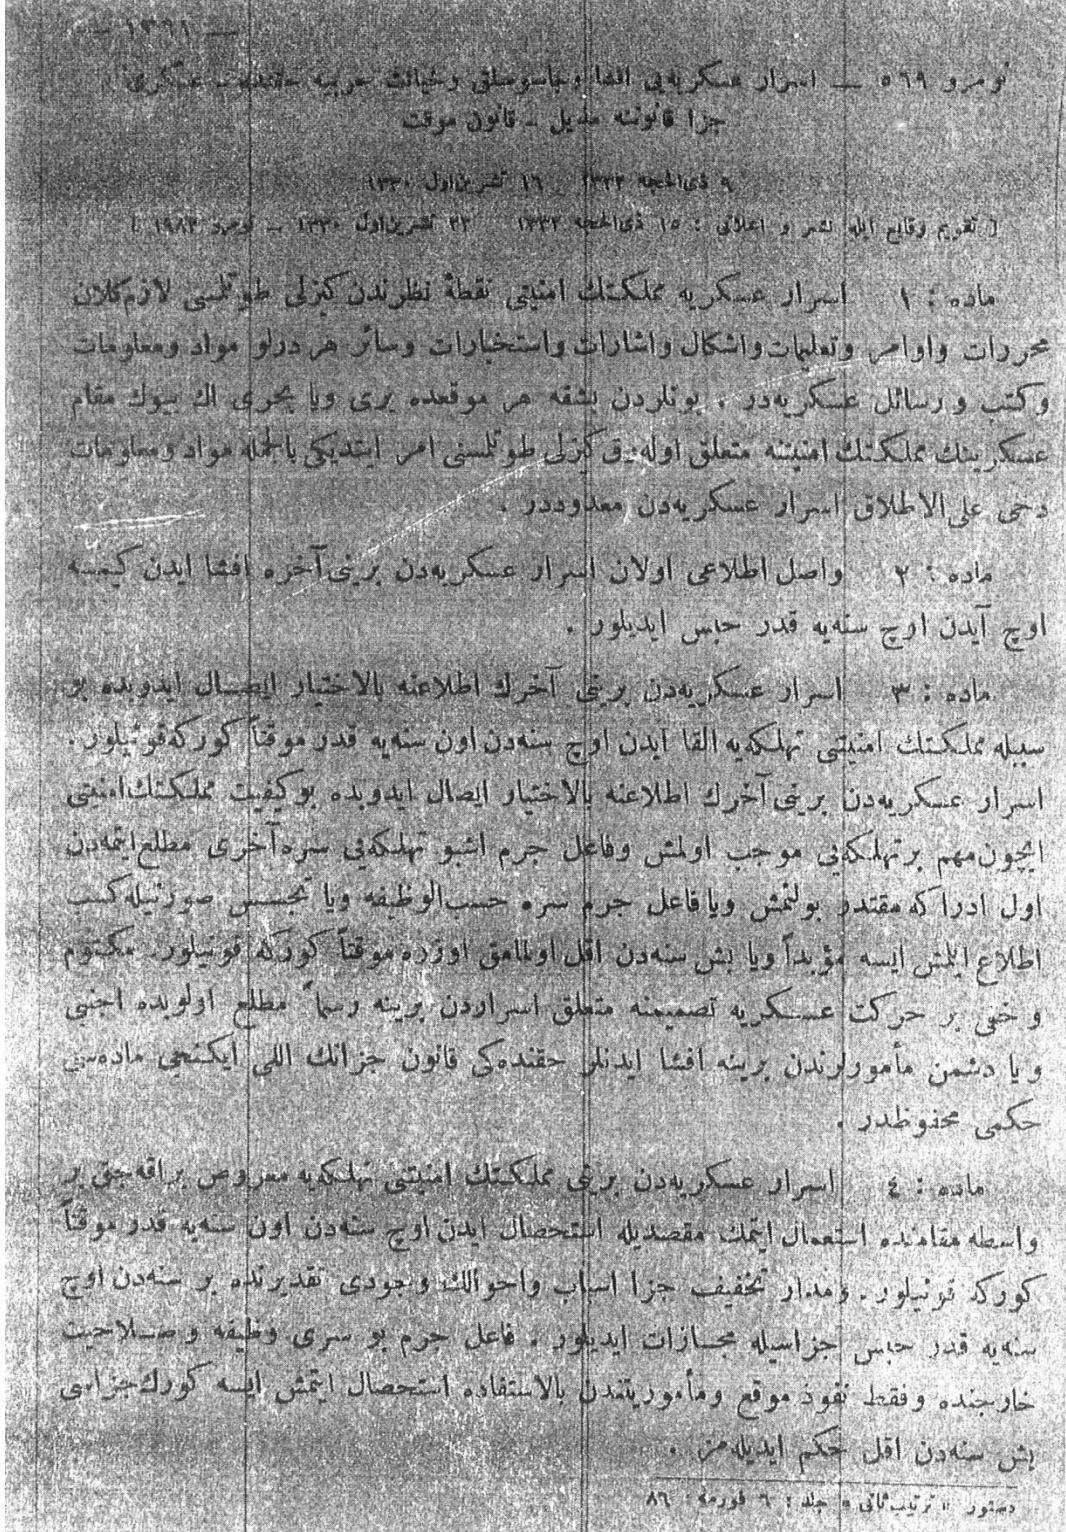 — ١٣٦١ —
نومرو ٥٦٩ — اسرار عسكریه‌یی افشا وجاسوسلق وخیانت حربیه حقنده‌ عسكری
جزا قانوننه مذیل ـ قانون موقت
٩ ذی‌الحجه ١٣٣٢ ١٦ تشرین‌اول ١٣٣٠
[ تقویم وقایع ایله نشر و اعلانی : ١٥ ذی‌الحجه ١٣٣٢ ٢٢ تشرین‌اول ١٣٣٠ ـ نومرو ١٩٨٣ ]
ماده : ١ اسرار عسكریه مملكتك امنیتی نقطۀ نظرندن كیزلی طوتلمسی لازم‌كلان
محررات واوامر وتعلیمات واشكال واشارات واستخبارات وسائر هر درلو مواد ومعلومات
وكتب ورسائل عسكریه‌در . بونلردن بشقه هر موقعده بری ویا بحری اك بیوك مقام
عسكرینك مملكتك امنیتنه متعلق اوله‌رق كیزلی طوتلمسنی امر ایتدیكی بالجمله مواد ومعلومات
دخی علی‌الاطلاق اسرار عسكریه‌دن معدوددر .
ماده : ٢ واصل اطلاعی اولان اسرار عسكریه‌دن برینی آخره افشا ایدن كیمسه
اوچ آیدن اوچ سنه‌یه قدر حبس ایدیلور .
ماده : ٣ اسرار عسكریه‌دن برینی آخرك اطلاعنه بالاختیار ایصال ایدوبده بو
سببله مملكتك امنیتنی تهلكه‌یه القا ایدن اوچ سنه‌دن اون سنه‌یه قدر موقتاً كوركه‌قونیلور .
اسرار عسكریه‌دن برینی آخرك اطلاعنه بالاختیار ایصال ایدوبده بوكیفیت مملكتك‌امنیتی
ایچون‌مهم برتهلكه‌یی موجب اولمش وفاعل جرم اشبو تهلكه‌یی سره‌آخری مطلع‌ایتمه‌دن
اول ادراكه مقتدر بولنمش ویا فاعل جرم سره حسب‌الوظیفه ویا تجسس صورتیله كسب
اطلاع ایلمش ایسه مؤبداً ویا بش سنه‌دن اقل اولمامق اوزره موقتاً كوركه قونیلور. مكتوم
وخفی بر حركت عسكریه تصمیمنه متعلق اسراردن برینه رسماً مطلع اولوبده اجنبی
ویا دشمن مأمورلرندن برینه افشا ایدنلر حقنده‌كی قانون جزانك اللی ایكنجی ماده‌سی
حكمی محفوظدر .
ماده : ٤ اسرار عسكریه‌دن برینی مملكتك امنیتنی تهلكه‌یه معروض براقه‌جق بر
واسطه مقامنده استعمال ایتمك مقصدیله استحصال ایدن اوچ سنه‌دن اون سنه‌یه قدر موقتاً
كوركه قونیلور . ومدار تخفیف جزا اسباب واحوالك وجودی تقدیرنده بر سنه‌دن اوچ
سنه‌یه قدر حبس جزاسیله مجازات ایدیلور . فاعل جرم بو سری وظیفه وصلاحیت
خارجنده وفقط نفوذ موقع ومأموریتندن بالاستفاده استحصال ایتمش ایسه كورك‌جزاسی
بش سنه‌دن اقل حكم ایدیله‌مز .
دستور « ترتیب‌ثانی » جلد : ٦ فورمه : ٨٦